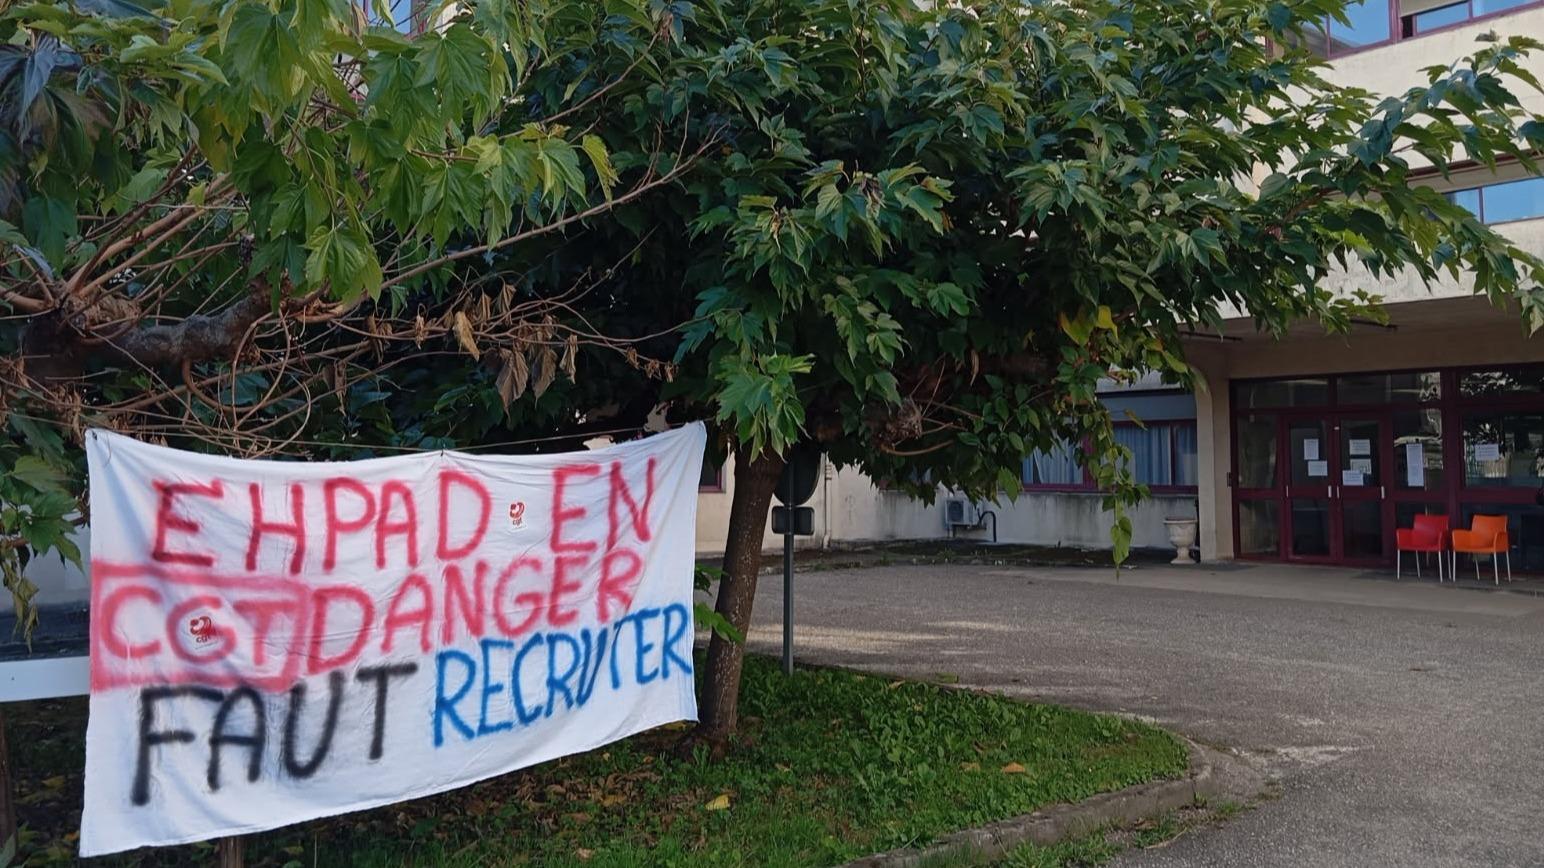 EHPAD EN
CGT DANGER
FAUT RECRUTER
cgt
cgt